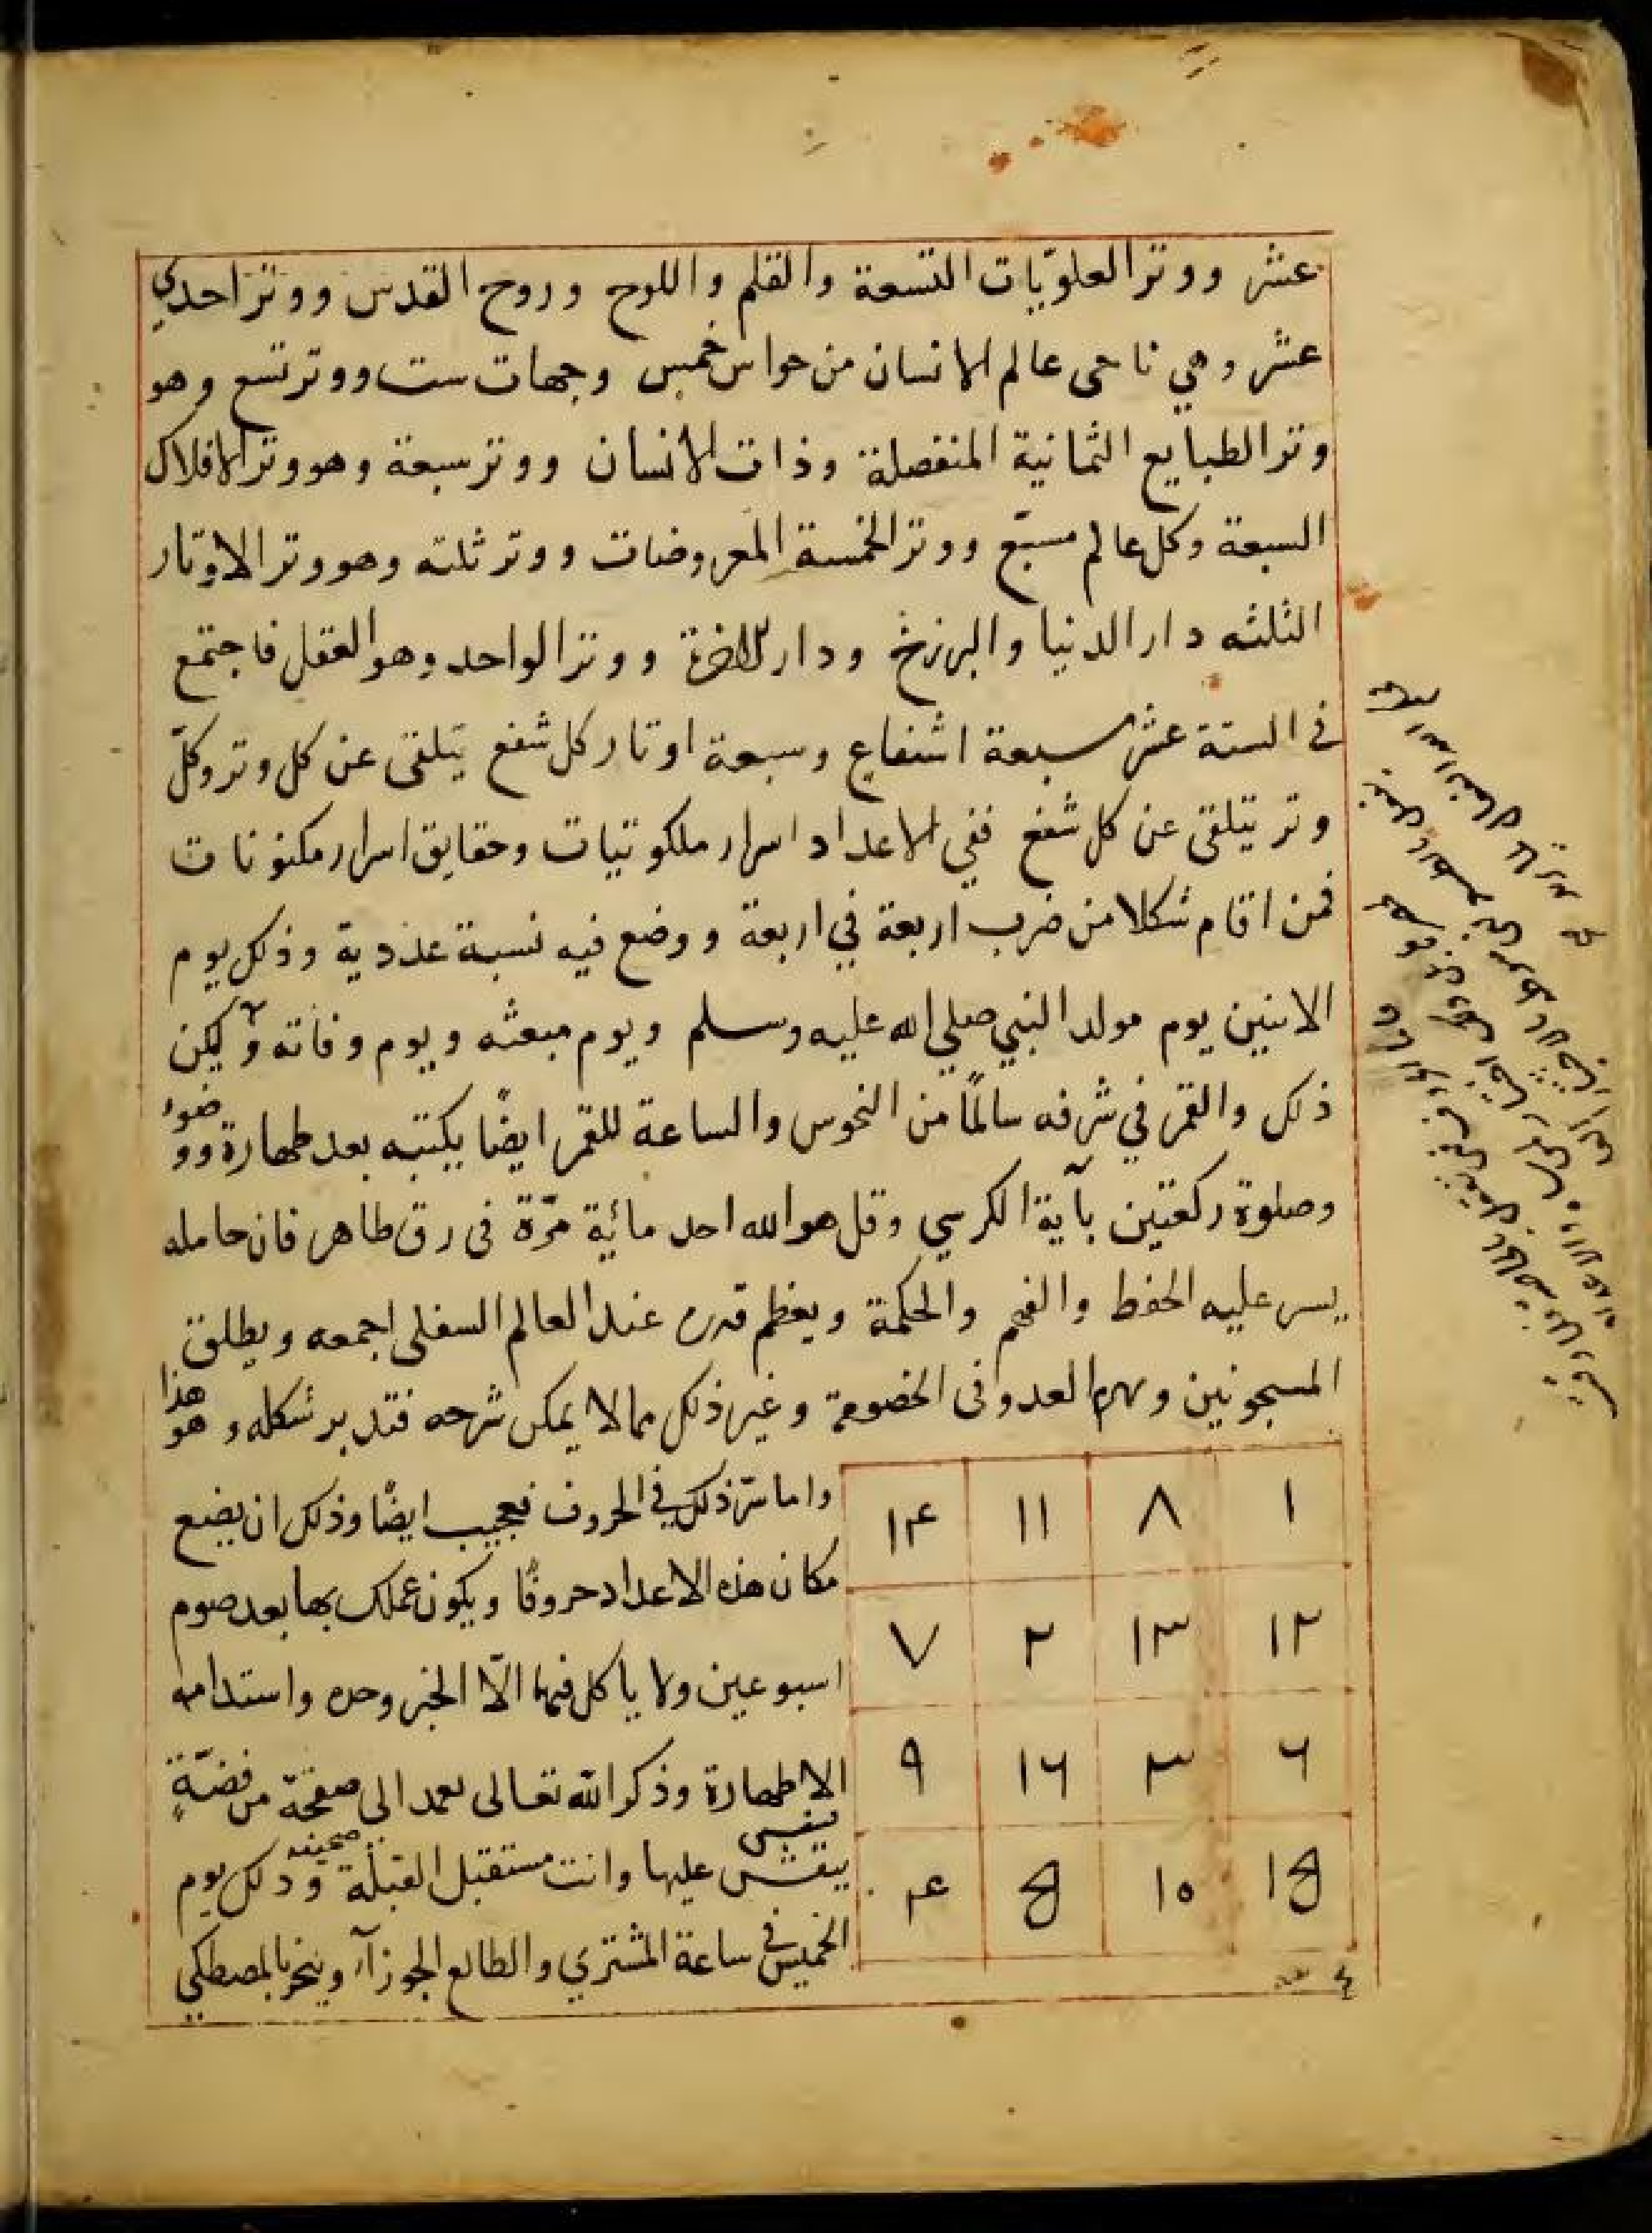 عشر ووتر العلويّات التسعة والقلم واللوح وروح القدس ووتر احدي
عشر وهي ناحى عالم الانسان من حواس خمس وجهات ست ووتر تسع وهو
وتر الطبايع الثمانية المنفصلة وذات الانسان ووتر سبعة وهو وتر الافلاك
السبعة وكل عالم مسبّع ووتر الخمسة المعروضات ووتر ثلثه وهو وتر الاوتار
الثلثه دار الدنيا والبرزخ ودار الاخرة ووتر الواحد وهو العقل فاجتمع
فى الستة عشر سبعة اشفاع وسبعة اوتار كل شفع يتلقى عن كل وتر وكلّ
وتر يتلقى عن كل شفع ففي الاعداد اسرار ملكوتيات وحقايق اسرار مكنونات
فمن اقام شكلا من ضرب اربعة في اربعة ووضع فيه نسبة عددية وذلك يوم
الاثنين يوم مولد النبي صلي الله عليه وسلم ويوم مبعثه ويوم وفاته وليكن
ذلك والقمر في شرفه سالمًا من النحوس والساعة للقمر ايضًا يكتبه بعد طهارة ووضوء
وصلوة ركعتين بآية الكرسي وقل هو الله احد مائية مرّة فى رق طاهر فان حامله
يسر عليه الحفظ والفهم والحكمة ويعظم قدره عند العالم السفلى اجمعه ويطلق
المسجونين ويهزم العدو فى الخصومة وغير ذلك مما لا يمكن شرحه فتدبر شكله وهو هذا
١ ٨ ١١ ١۴
١٢ ١٣ ٢ ٧
٦ ٣ ١٦ ٩
١٥ ١٠ ٥ ۴
واما سرّ ذلك في الحروف فعجيب ايضًا وذلك ان يضع
مكان هذه الاعداد حروفًا ويكون عملك بها بعد صوم
اسبوعين ولا ياكل فيهما الّا الخبز وحده واستدامه
الاطهارة وذكر الله تعالى يعمد الى صفحة من فضّةٍ
ينقش عليها وانت مستقبل القبلة وذلك يوم
الخميس في ساعة المشتري والطالع الجوزآء ويبخر بالمصطكي